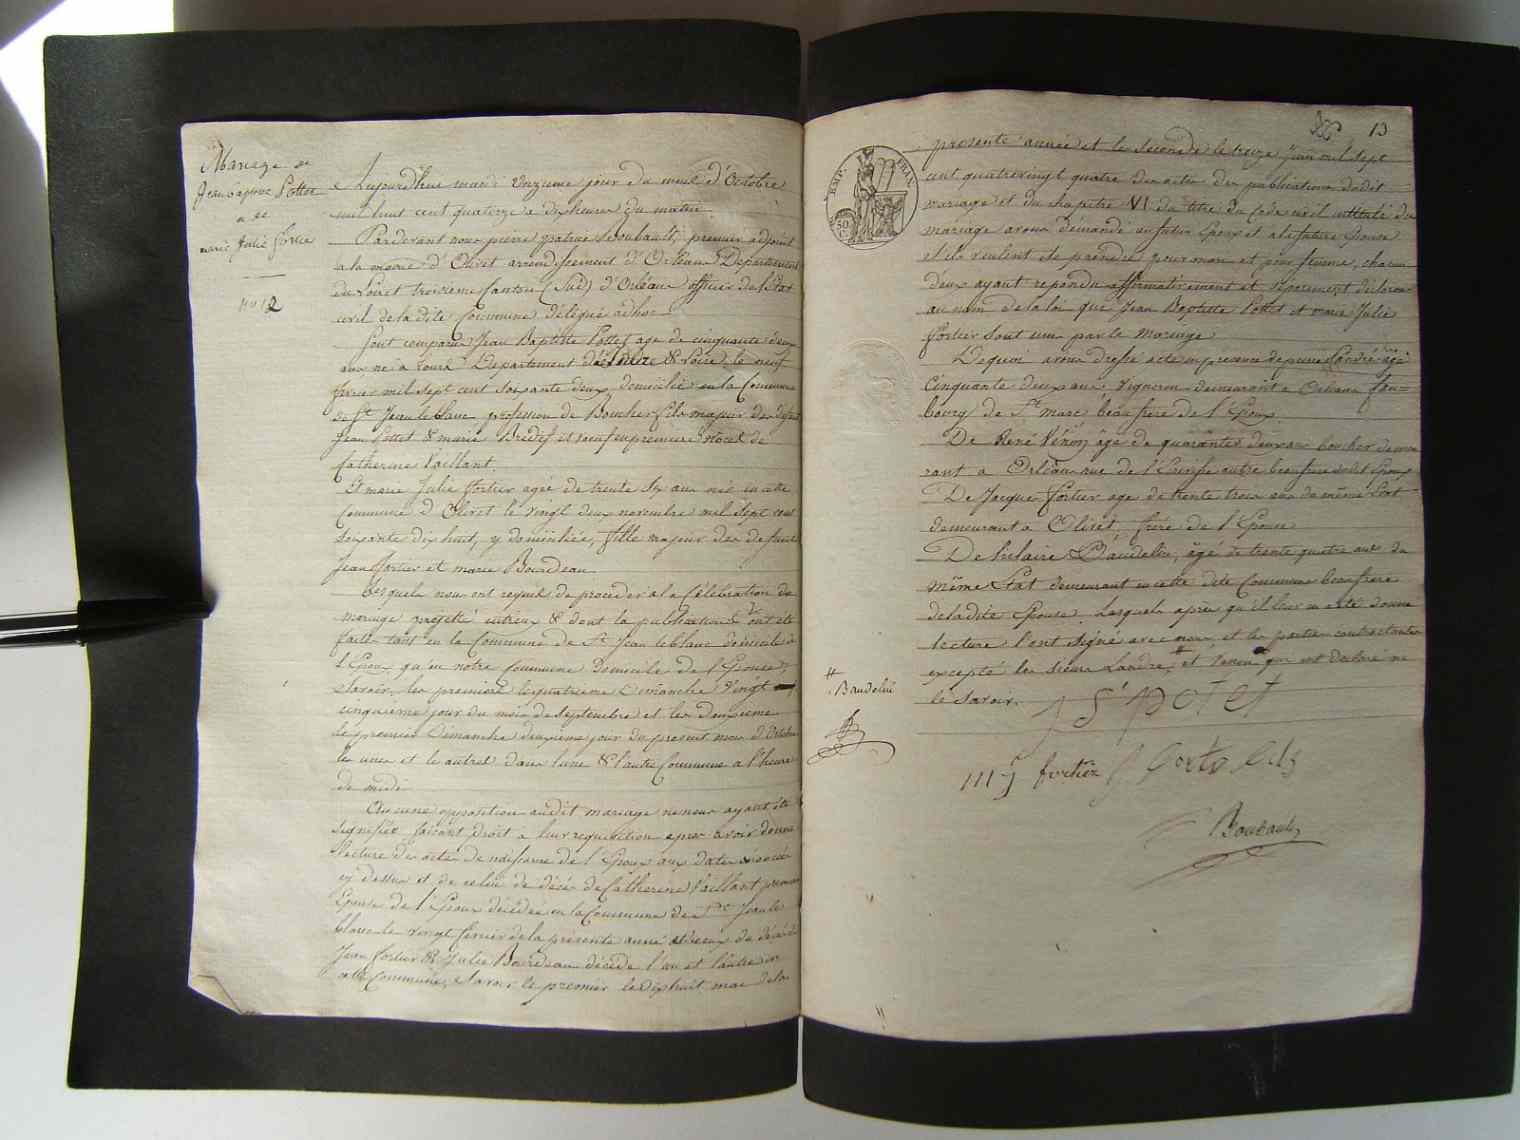 Mariage de
Jean Baptiste Pottet
& de
marie Julie fortier
N° 12
Aujourd'hui mardi onzieme jour du mois d'Octobre
mil huit cent quatorze a dix heures du matin
Pardevant nous pierre patrice Boubault, premier adjoint
a la mairie d'Olivet arrondissement d'Orléans Departement
du Loiret troisieme Canton (Sud) d'Orléans officier de l'état
civil de la dite Commune délégué adhoc
Sont comparus Jean Baptiste Pottet age de cinquante deux
ans né a tours Departement d'indre & Loire le neuf
fevrier mil sept cent soixante deux domicilié en la Commune
de St Jean le blanc profession de Boucher fils majeur des defunts
Jean Pottet & marie Bredif et veuf en premiere noces de
Catherine Vaillant.
Et marie Julie fortier agée de trente six ans née en cette
Commune d'Olivet le vingt deux novembre mil sept cent
soixante dix huit, y domiciliée, fille majeur des defunts
Jean fortier et marie Bourdeau
Lesquels nous ont requis de procéder a la Célébration du
mariage projetté entreux & dont les publications ont été
faites tant en la Commune de St Jean le blanc domicile de
l'Epoux qu'en notre Commune domicile de l'Epouse
Savoir, les premiere le quatrieme dimanche vingt
cinquieme jour du mois de septembre et les deuxieme
le premier dimanche deuxieme jour du present mois d'Octobre
les unes et les autres dans l'une & l'autre Commune a l'heure
de midi
Aucune opposition audit mariage ne nous ayant été
signifiée faisant droit a leur requisition apres avoir donné
lecture des actes de naissance de l'Epoux aux dates énoncées
cy dessus et de celui de décès de Catherine Vaillant premiere
Epouse de l'Epoux décédée en la Commune de St Jean le
blanc le vingt fevrier de la présente année et ceux de décès de
Jean fortier & Julie Bourdeau décédé l'un et l'autre en
cette Commune, Savoir le premier le dix huit mai de la
13
EMP. FRAN.
50 C.
presente année et la seconde le treize Juin mil sept
cent quatrevingt quatre des actes des publications dudit
mariage et du chapitre VI du titre du Code civil intitulé du
mariage avons demandé au futur Epoux et a la future Epouse
s'ils veulent se prendre pour mari et pour femme, chacun
d'eux ayant repondu affirmativement et séparement déclarons
au nom de la loi que Jean Baptiste Pottet et marie Julie
fortier sont unis par le mariage
De quoi avons dressé acte en présence de pierre Landré agé
Cinquante deux ans, vigneron demeurant a Orléans faux=
bourg de St marc beau frere de l'Epoux
De René Venon âgé de quarante deux ans boucher demeu
rant a Orléans rue de autre beau frere dudit Epoux
De Jacques fortier age de trente trois ans du même Etat
demeurant a Olivet, frère de l'Epouse
De hilaire Baudelui, âgé de trente quatre ans du
même Etat demeurant en cette dite Commune beau frere
de la dite Epouse. Lesquels après qu'il leur en a été donné
lecture l'ont signé avec nous et les parties contractantes
excepté les sieurs Landré, # et Venon qui ont declaré ne
le savoir.
#
Baudelui
J B potet
m J fortier
J fortie
Boubault